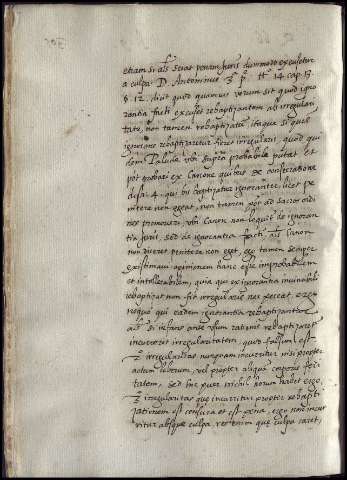 etiam si als sciat penam juris dummodo excusetur
a culpa. D. Antoninus 3 p. tt. 14 cap. 13
§. 12. dicit quod quamuis verum sit quod igno
rantia facti excuset rebaptizantem ab irregulari
tate, non tamen rebaptizatum itaque si quis
ignoranter rebaptizaretur fieret irregularis, quod qui
dem Palud. vbi supra probabile putat et
pot probari ex Canone qui bis de consecratione
dist. 4. qui bis baptizatus ignoranter, licet pe
nitere non egeat, non tamen ad sacros ordi
nes promoueri, vbi Canon non loquitur de ignoran
tia juris, sed de ignorantia facti als Canon
non diceret penitere non eget, ego tamen semper
existimaui opinionem hanc esse improbabilem
et intollerabilem, quia que ex ignorantia inuincibili
rebaptizat non fit irregularis nec peccat, ergo
neque qui eadem ignorantia rebaptizantur
als si infans ante vsum rationis rebaptizaret
incurreret irregularitatem, quod falsum est
irregularitas nunquam incurritur nisi propter
actum liberum, vel propter aliquem corporis foe
tatem, sed hic puer nichil horum habet ergo,
irregularitas que incurritur propter rebapti
zationem est censura et est pena, ergo non incur
ritur absque culpa, verum que culpa caret,